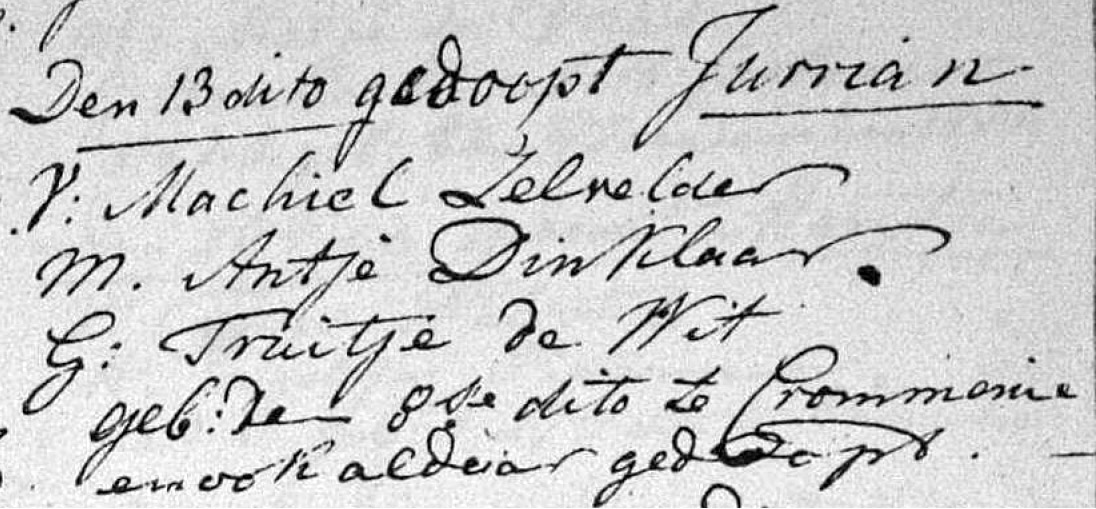 Den 13 dito gedoopt Jurrian
V: Machiel Zelvelder
M. Antje Dinklaar.
G: Truitje de Wit
geb: den 8ste dito te Crommenie
en ook aldaar gedoopt.